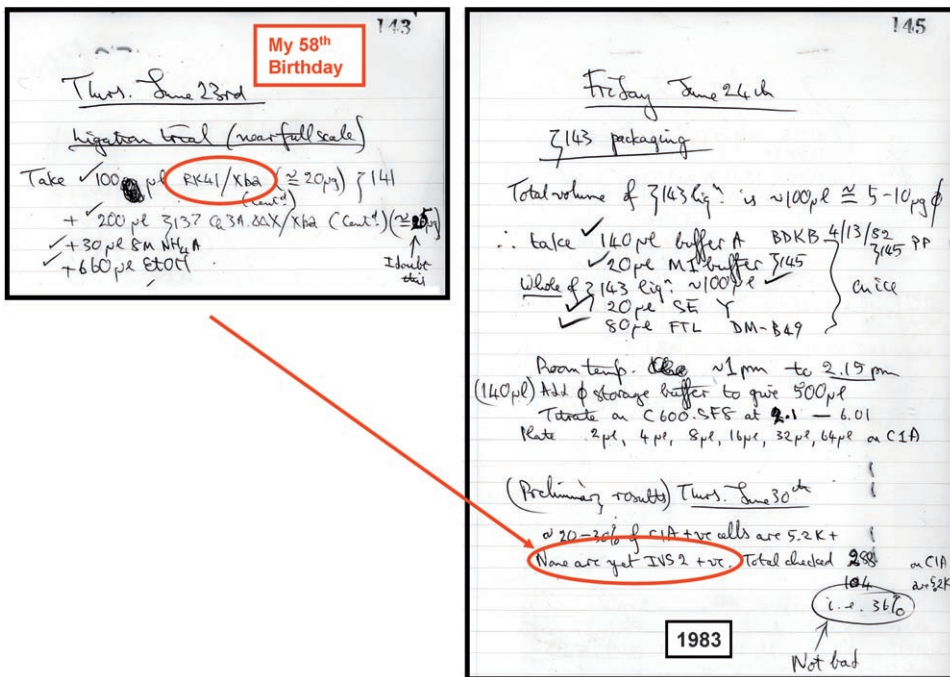 143
My 58th
Birthday
Thurs. June 23rd
Ligation trial (near full scale)
Take ✓ 100 µl RK41/Xba (≅ 20µg) ξ141
(Cent.d)
+ ✓ 200 µl ξ137 Xba (Cent.d) (≅ µg)
✓ + 30 µl 8M NH4A
✓ + 660 µl EtOH
I doubt
this
145
Friday June 24th
ξ143 packaging
Total volume of ξ143 lign. is ~100µl ≅ 5-10µg ϕ
∴ take ✓ 140µl buffer A BDKB 4/13/82
✓ 20µl MI buffer ξ145 ξ145 PP
Whole of ξ143 lign. ~100µl ✓ on ice
✓ 20µl SE Y
✓ 80µl FTL DM-B49
Room temp. ~1 pm to 2.15 pm
(140µl) Add ϕ storage buffer to give 500µl
Titrate on C600.SF8 at 2.1 — 6.01
Plate 2µl, 4µl, 8µl, 16µl, 32µl, 64µl on C1A
(Preliminary results) Thurs. June 30th
~ 20-30% of C1A +ve cells are 5.2K+
None are yet IVS2 +ve. Total checked 288 on C1A
104 are 5.2K
i.e. 36%
1983
Not bad